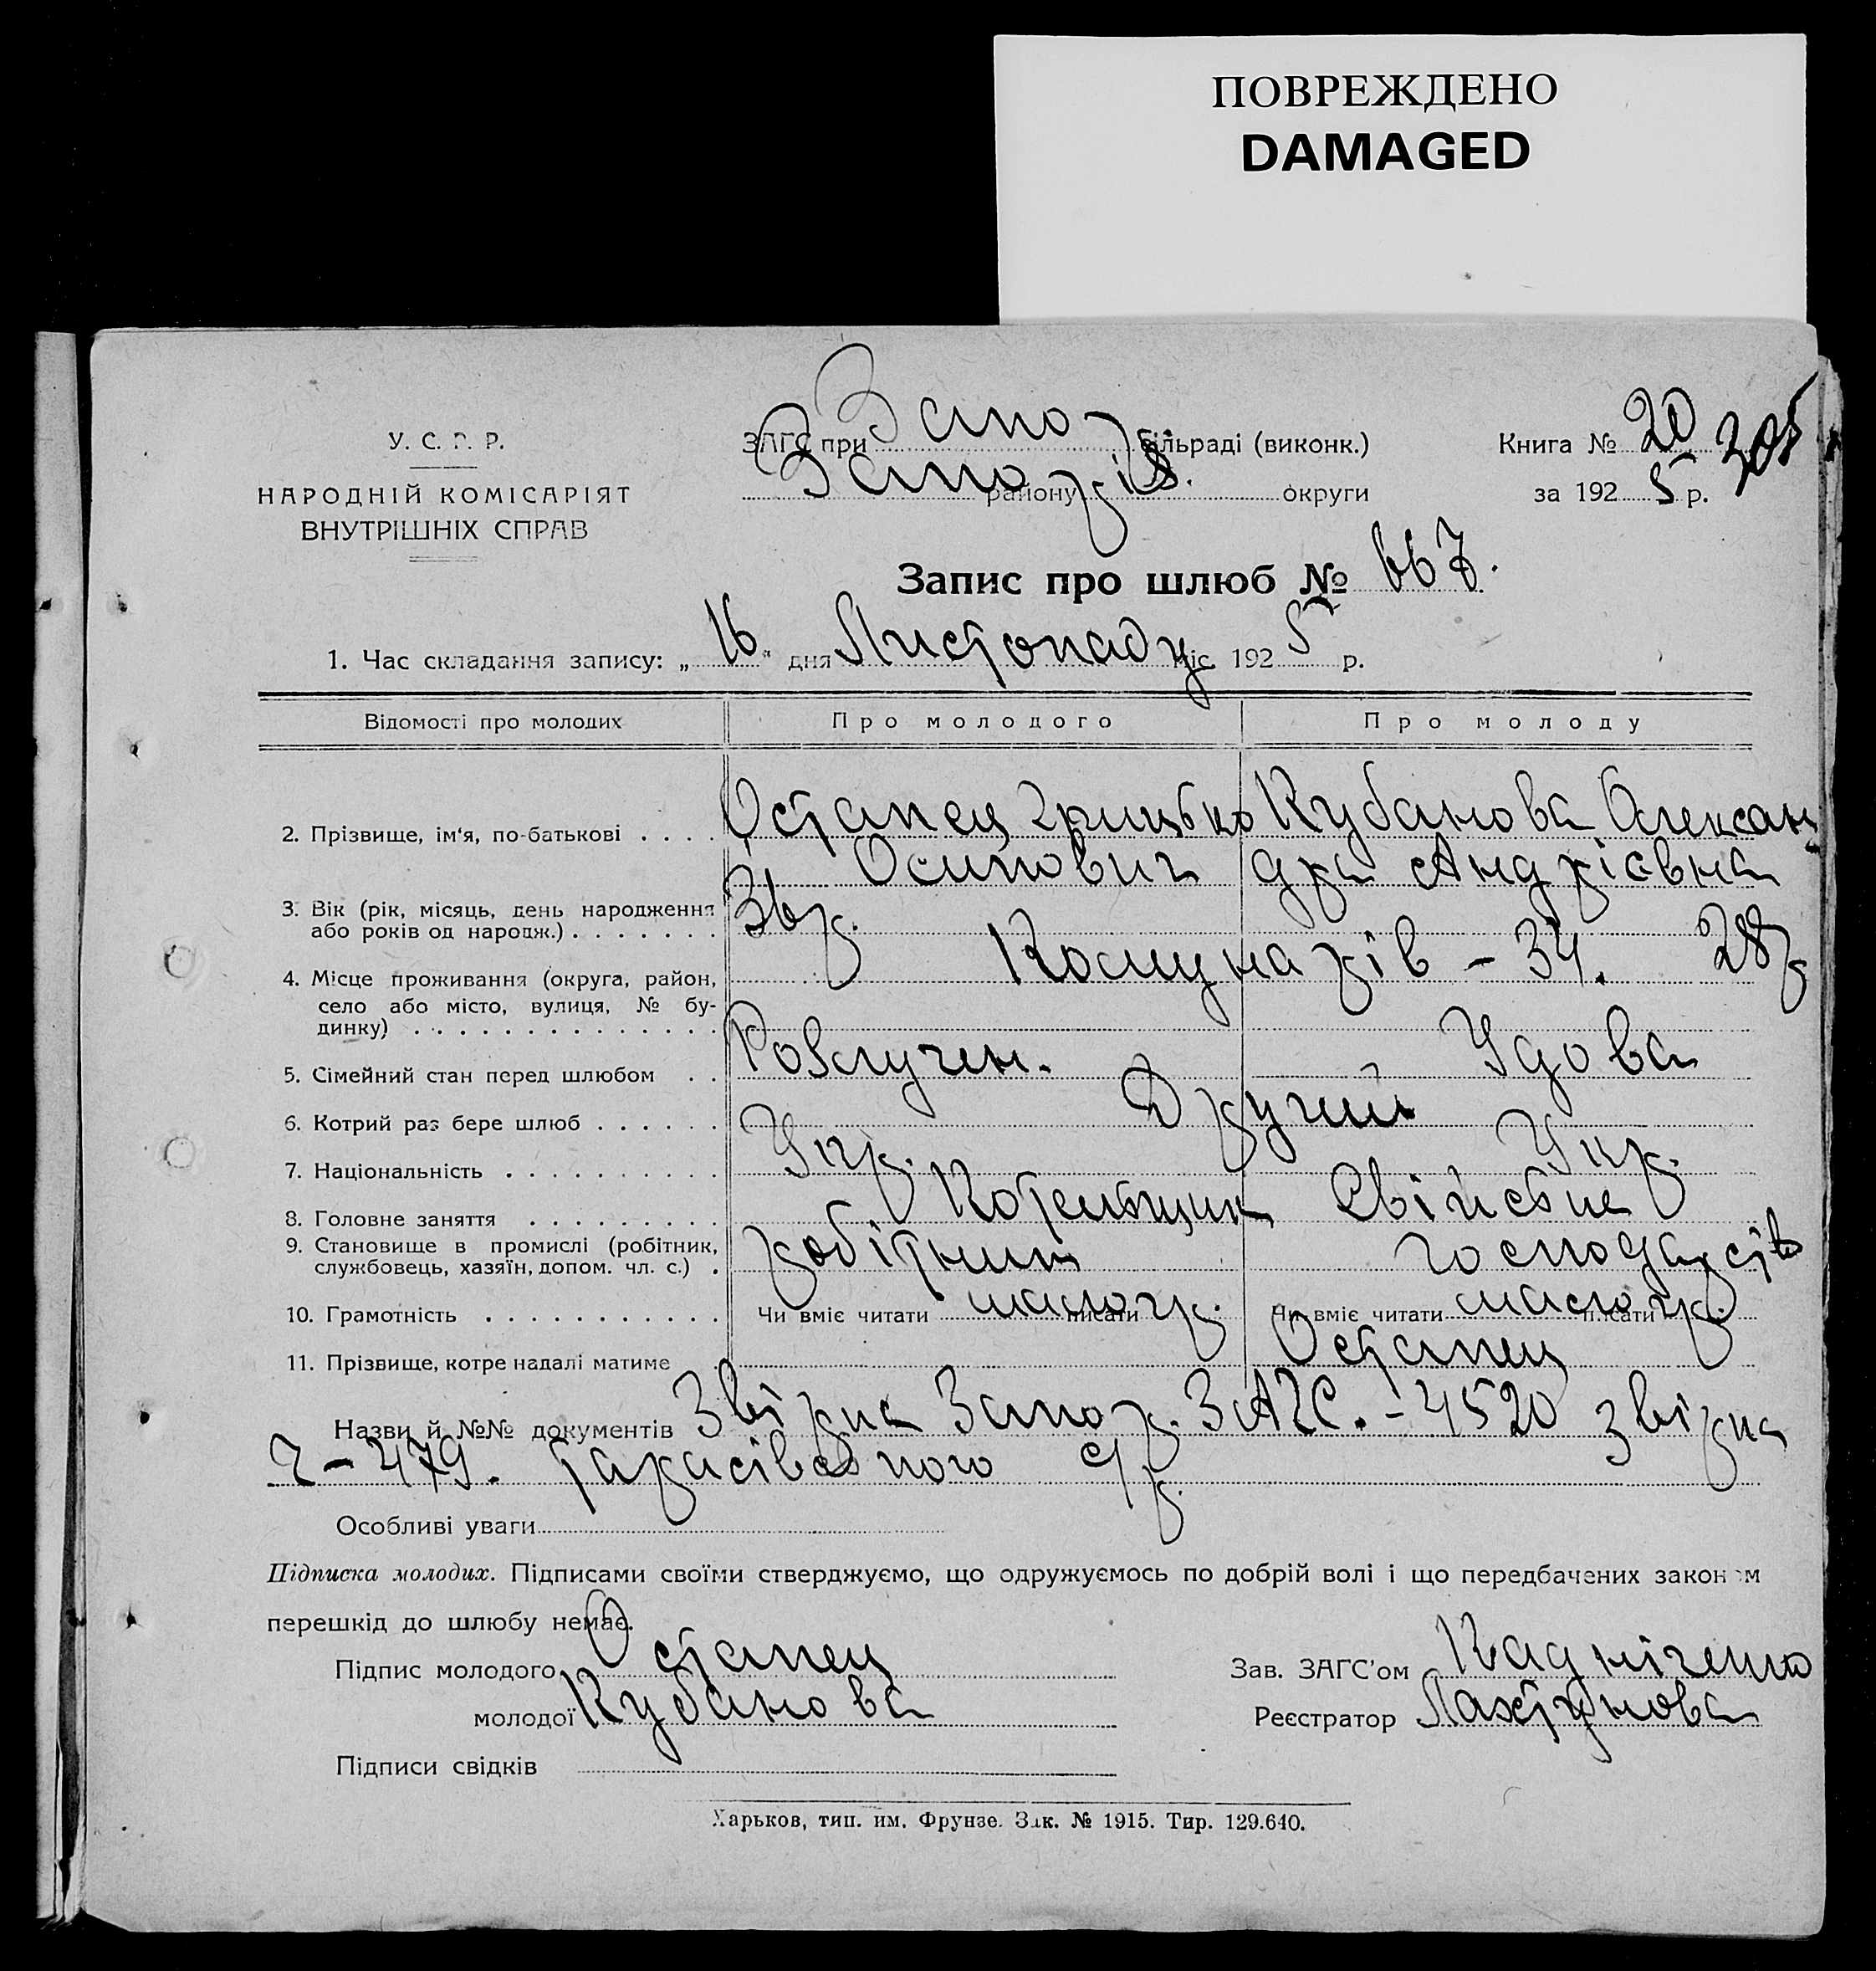 ПОВРЕЖДЕНО
DAMAGED
У. С. Р. Р.
НАРОДНІЙ КОМІСАРІЯТ
ВНУТРІШНІХ СПРАВ
ЗАГС при Запо міськраді (виконк.)
Запоріз. району округи
Книга № 20 305
за 1925 р.
Запис про шлюб № 667.
1. Час складання запису: „16" дня Листопаду міс. 1925 р.
Відомості про молодих Про молодого Про молоду
2. Прізвище, ім'я, по-батькові . . . . Остапец Грицько Кубанова Олексан
Осипович дра Андріевна
3. Вік (рік, місяць, день народження 36 р.
або років од народж.) . . . . . . . 28 р
4. Місце проживання (округа, район, Комунарів – 34.
село або місто, вулиця, № бу-
динку) . . . . . . . . . . . . . .
5. Сімейний стан перед шлюбом . . Розлучен. Удова
6. Котрий раз бере шлюб . . . . . . Другий
7. Національність . . . . . . . . . . Укр. Укр.
8. Головне заняття . . . . . . . . . Котельщик Свійське
9. Становище в промислі (робітник, робітник господарств
службовець, хазяїн, допом. чл. с.) .
10. Грамотність . . . . . . . . . . . Чи вміє читати малогр. писати Чи вміє читати малогр. писати
11. Прізвище, котре надалі матиме Остапец
Назви й №№ документів Звірка Запор. ЗАГС. – 4520 звірка
2 – 479. с/р.
Особливі уваги
Підписка молодих. Підписами своїми стверджуємо, що одружуємось по добрій волі і що передбачених законом
перешкід до шлюбу немає.
Підпис молодого Остапец Зав. ЗАГС'ом
молодої Кубанова Реєстратор
Підписи свідків
Харьков, тип. им. Фрунзе. Зак. № 1915. Тир. 129.640.